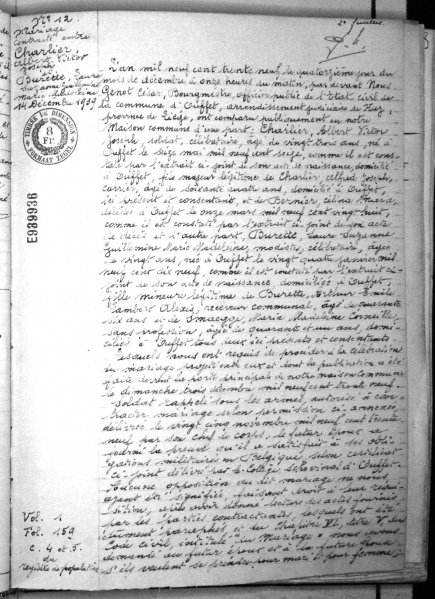 2e feuillet.
N° 12
Mariage
contracté entre
Charlier,
Albert Victor
Joseph
Burette, Laure
Suzanne Guillemine
Marie Madeleine
14 Décembre 1939
TIMBRE DE DIMENSION
8
FR.
FORMAT MOYEN
E989936
L'an mil neuf cent trente neuf le quatorzième jour du
mois de décembre à onze heures du matin, par devant Nous
Genot César, Bourgmestre, officier public de l'état civil de
la commune d'Ouffet, arrondissement judiciaire de Huy,
province de Liége, ont comparu publiquement en notre
Maison commune d'une part; Charlier, Albert Victor
Joseph, soldat, célibataire, âgé de vingt trois ans, né à
Ouffet le seize mai mil neuf cent seize, comme il est cons-
taté par l'extrait ci-joint de son acte de naissance, domicilié
à Ouffet, fils majeur légitime de Charlier Alfred Joseph,
carrier, âgé de soixante quatre ans, domicilié à Ouffet,
ici présent et consentant, et de Bernier, Célina Maria,
décédée à Ouffet le onze mars mil neuf cent vingt huit,
comme il est constaté par l'extrait ci-joint de son acte
de décès et d'autre part, Burette, Laure Suzanne
Guillemine Marie Madeleine, modiste, célibataire, âgée
de vingt ans, née à Ouffet le vingt quatre janvier mil
neuf cent dix neuf, comme il est constaté par l'extrait ci-
joint de son acte de naissance, domiciliée à Ouffet,
fille mineure légitime de Burette, Arthur Emile
Lambert Alexis, receveur communal, âgé de quarante
six ans et de Marie Madeleine Corneille,
sans profession, âgée de quarante et un ans, domi-
ciliés à Ouffet tous deux ici présents et consentants.
Lesquels nous ont requis de procéder à la célébration
du mariage projeté entre eux et dont la publication a été
faite devant la porte principale de notre maison commune
le dimanche trois décembre mil neuf cent trente neuf.
Soldat rappelé sous les armes, autorisé à con-
tracter mariage selon permission ci-annexée,
délivrée le vingt cinq novembre mil neuf cent trente
neuf par son chef de corps, le futur époux a
fourni la preuve qu'il a satisfait à ses obli-
gations militaires en Belgique, selon certificat
ci-joint délivré par le Collège échevinal d'Ouffet.
Aucune opposition au dit mariage ne nous
ayant été signifiée, faisant droit à leur réqui-
sition, après avoir donné lecture des actes fournis
par les parties contractantes, lesquels ont été
dûment paraphés et du chapitre VI, titre V du
Code civil, intitulé "du Mariage" nous avons
demandé au futur époux et à la future épouse
s'ils veulent se prendre pour mari et pour femme,
Vol. 1
Fol. 159
c. 4 et 5.
du
registre de population